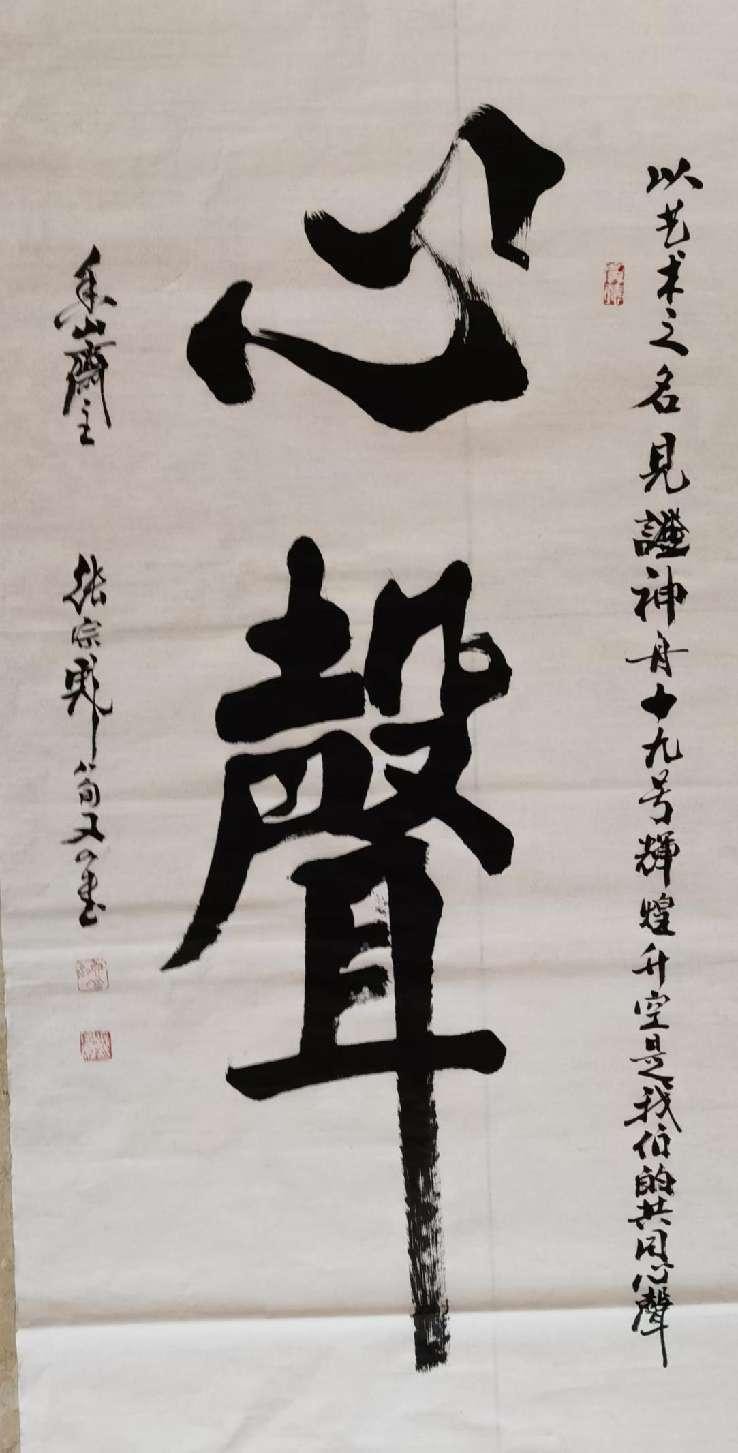 以艺术之名見證神舟十九号輝煌升空是我伯的共同心聲
心聲
山齋主
張宗彪八旬又四書